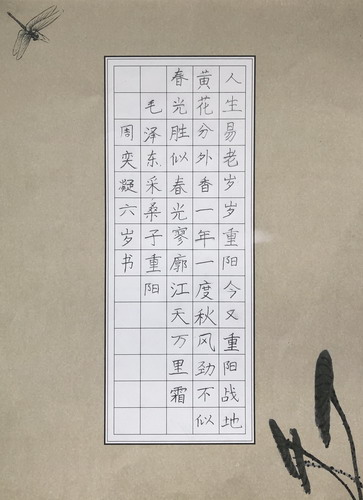 人生易老岁岁重阳今又重阳战地
黄花分外香一年一度秋风劲不似
春光胜似春光寥廓江天万里霜
毛泽东采桑子重阳
周奕凝六岁书